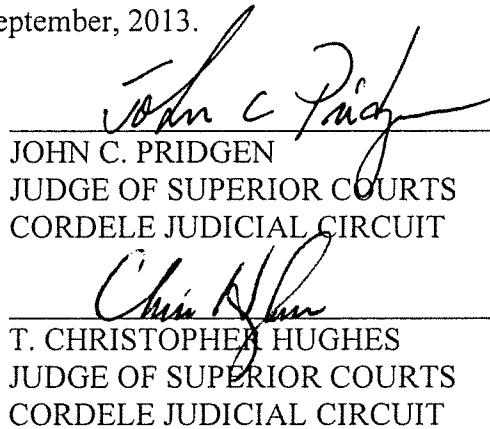 eptember, 2013.
John C Pridgen
JOHN C. PRIDGEN
JUDGE OF SUPERIOR COURTS
CORDELE JUDICIAL CIRCUIT
Chris Hughes
T. CHRISTOPHER HUGHES
JUDGE OF SUPERIOR COURTS
CORDELE JUDICIAL CIRCUIT